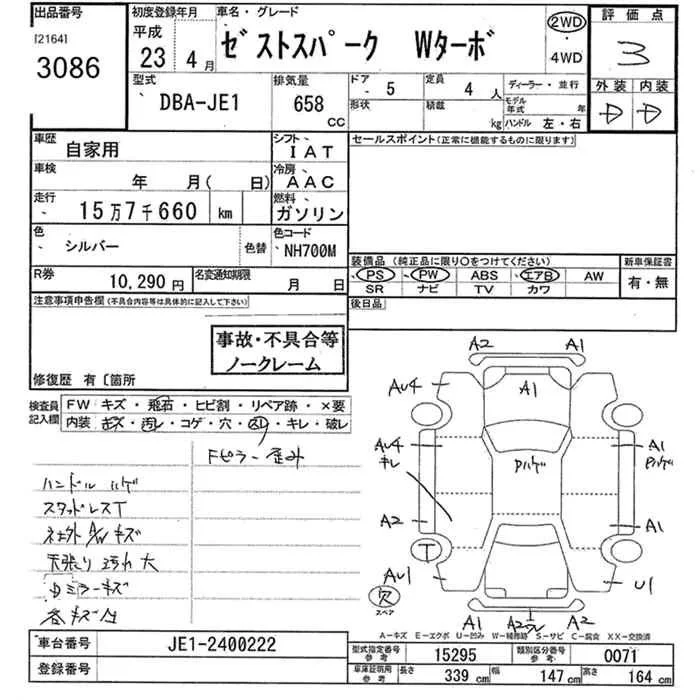 出品番号
[2164]
3086
初度登録年月
平成
23 年 4 月
車名・グレード
ゼストスパーク Wターボ
2WD
・
4WD
評価点
3
外装 内装
D D
型式
DBA-JE1
排気量
658
CC
ドア
5
定員
4 人
形状
積載
kg
ディーラー・並行
モデル年式 年
ハンドル 左・右
車歴
自家用
シフト
IAT
車検
年 月( 日)
冷房
AAC
走行
15万7千660 km
燃料
ガソリン
色
シルバー
色替
色コード
NH700M
R券
10,290 円
名変通知期限
月 日
セールスポイント(正常に機能するものに限ります)
装備品(純正品に限り○をつけてください)
PS PW ABS エアB AW
SR ナビ TV カワ
新車保証書
有・無
後日品
注意事項申告欄(不具合内容等は具体的に記入して下さい)
事故・不具合等
ノークレーム
修復歴 有〔箇所
検査員
記入欄
FW キズ・飛石・ヒビ割・リペア跡・×要
内装 キズ・汚レ・コゲ・穴・・キレ・破レ
Fピラー歪み
ハンドルハゲ
スタッドレスT
ネ土外A/Wキズ
天張り汚れ大
Dミラーキズ
各キズ凹
A2 A1
AU4
A1
AU4
キレ
Pハゲ
A1
Pハゲ
A2
A1
T
AU1
U1
欠
スペア
A1 A2 A2
A-キズ E-エクボ U-凹み W-補修跡 S-サビ C-腐食 XX-交換済
車台番号
JE1-2400222
登録番号
型式指定番号
参考
15295
類別区分番号
参考
0071
車庫証明用
参考
長さ
339 cm
幅
147 cm
高さ
164 cm